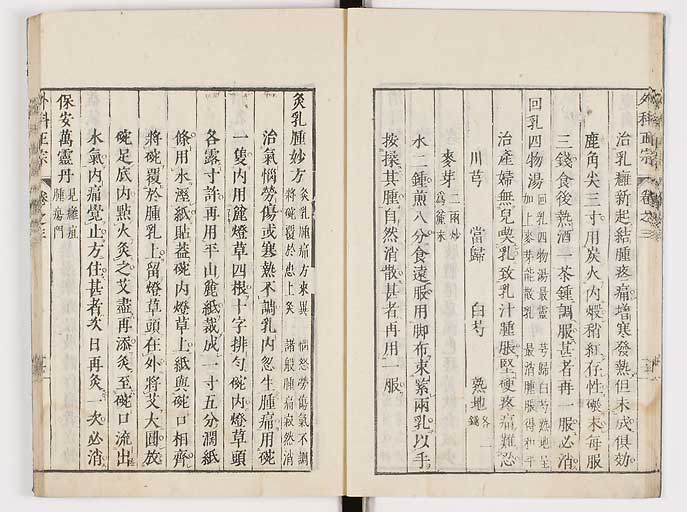 外科正宗 卷之三
治乳癰新起結腫疼痛增寒發熱但未成俱効
鹿角尖三寸用炭火內煅稍紅存性碾末每服
三錢食後熱酒一茶鍾調服甚者再一服必消
回乳四物湯 回乳四物湯最靈 芎歸白芍熟地呈
加上麥芽能散乳 最消腫脹得和平
治產婦無兒喫乳致乳汁腫脹堅硬疼痛難忍
川芎 當歸 白芍 熟地 各二錢
麥芽 二兩炒爲粗末
水二鍾煎八分食遠服用脚布束緊兩乳以手
按揉其腫自然消散甚者再用一服
灸乳腫妙方 灸乳腫痛方來異 惱怒勞傷氣不調
將碗覆於患上灸 諸般腫痛寂然消
治氣惱勞傷或寒熱不調乳內忽生腫痛用碗
一隻內用麄燈草四根十字排勻碗內燈草頭
各露寸許再用平山麄紙裁成一寸五分濶紙
條用水溼紙貼葢碗內燈草上紙與碗口相齊
將碗覆於腫乳上留燈草頭在外將艾大圓放
碗足底內點火灸之艾盡再添灸至碗口流出
水氣內痛覺止方住甚者次日再灸一次必消
保安萬靈丹 見癰疽腫瘍門
外科正宗 卷之三